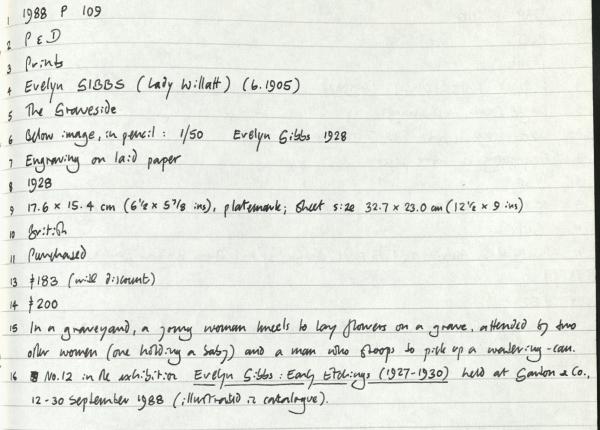 1 1988 P 109
2 P & D
3 Prints
4 Evelyn GIBBS (Lady Willatt) (b.1905)
5 The Graveside
6 Below image, in pencil: 1/50 Evelyn Gibbs 1928
7 Engraving on laid paper
8 1928
9 17.6 x 15.4 cm (6 1/2 x 5 7/8 ins), platemark; sheet size 32.7 x 23.0 cm (12 1/2 x 9 ins)
10 British
11 Purchased
13 £183 (with discount)
14 £200
15 In a graveyard, a young woman kneels to lay flowers on a grave, attended by two
other women (one holding a baby) and a man who stoops to pick up a watering-can.
16 No.12 in the exhibition Evelyn Gibbs: Early Etchings (1927-1930) held at Garton & Co.,
12-30 September 1988 (illustrated in catalogue).